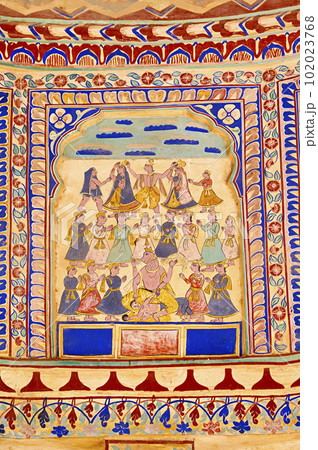 pixta.jp - 102023768